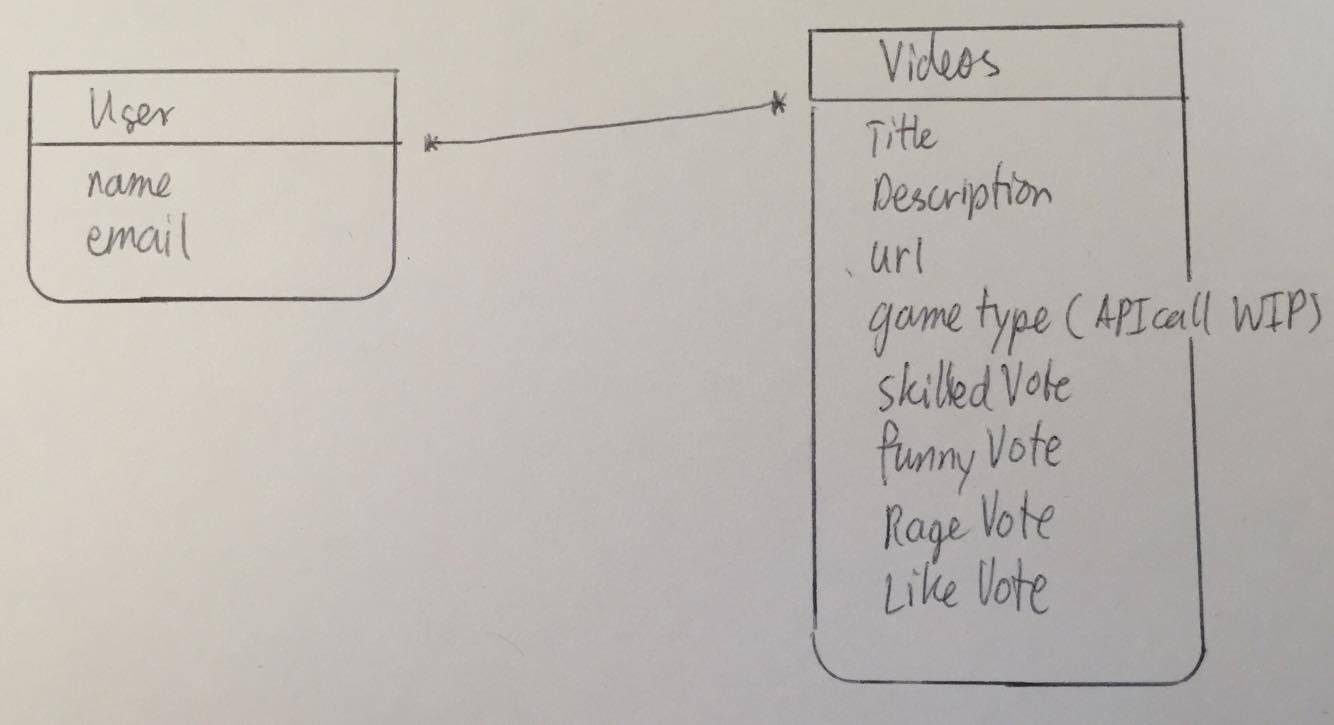 User
name
email
* *
Videos
Title
Description
url
game type (API call WIP)
skilled Vote
funny Vote
Rage Vote
Like Vote